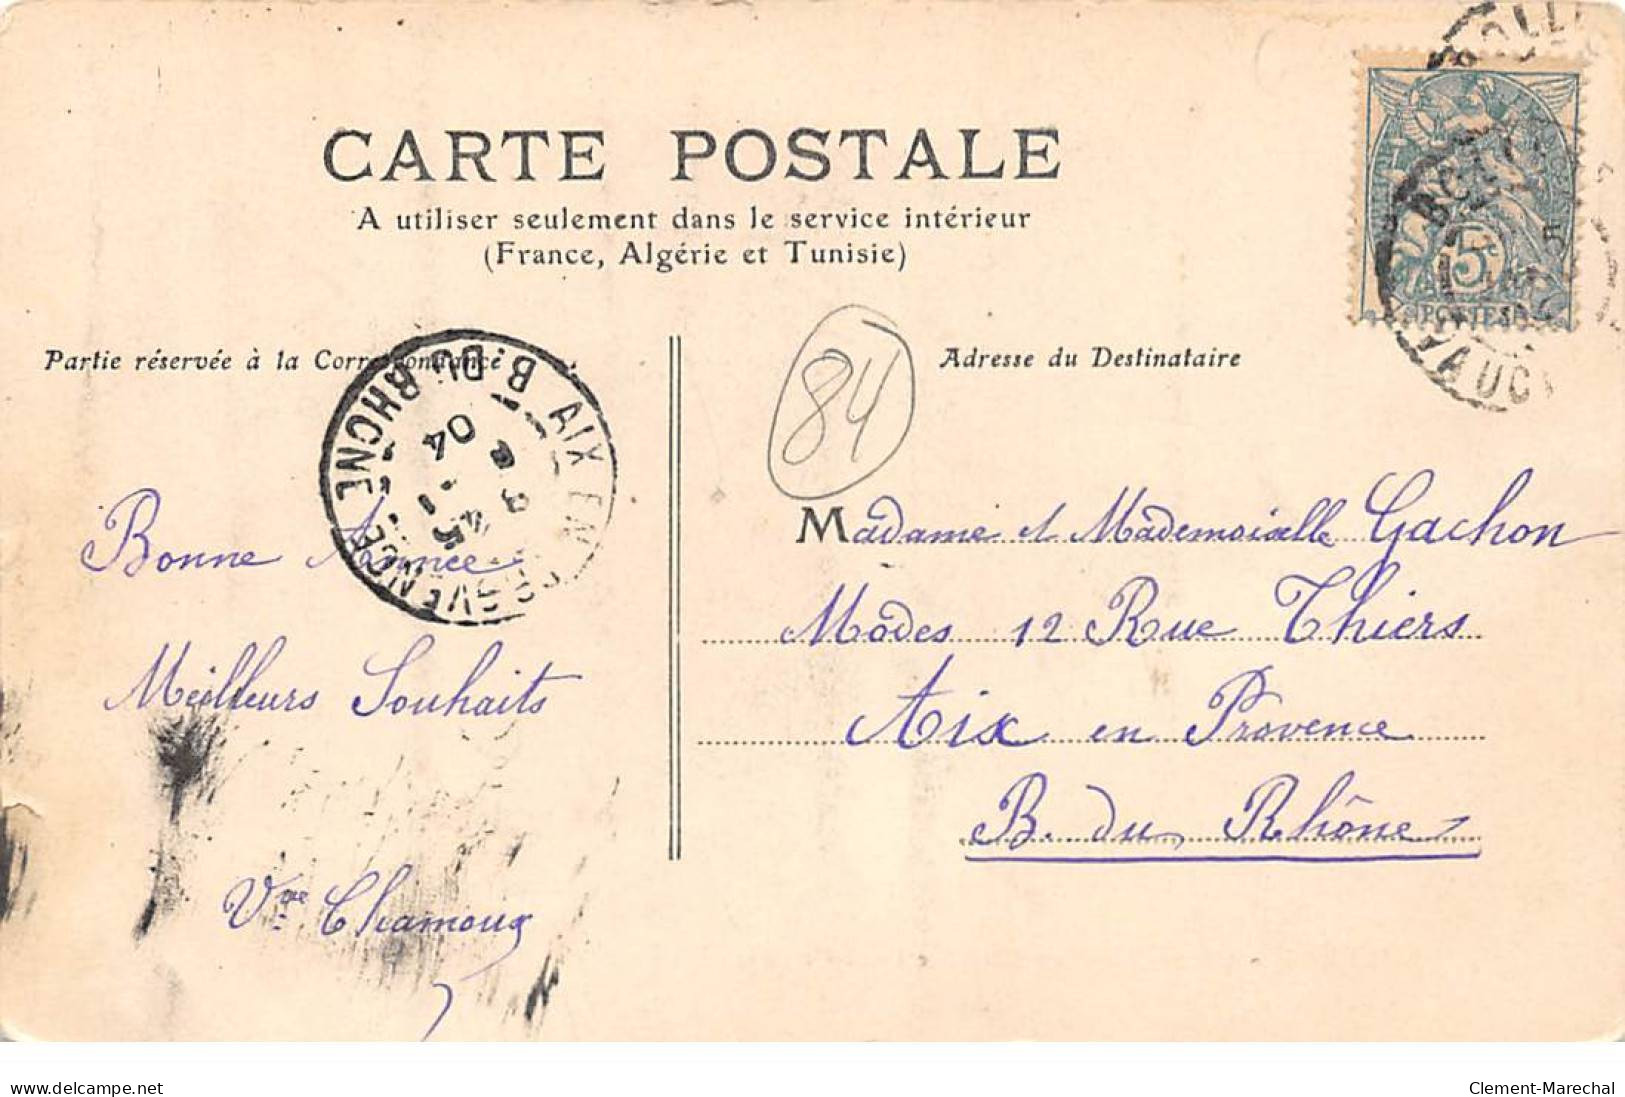 CARTE POSTALE
A utiliser seulement dans le service intérieur
(France, Algérie et Tunisie)
Partie réservée à la Correspondance
Adresse du Destinataire
84
5c
POSTES
VAUCL
AIX EN PROVENCE
B. DU RHONE
04
Bonne Année
Meilleurs Souhaits
Vve Chamoux
Madame et Mademoiselle Gachon
Modes 12 Rue Thiers
Aix en Provence
B. du Rhône
www.delcampe.net
Clement-Marechal